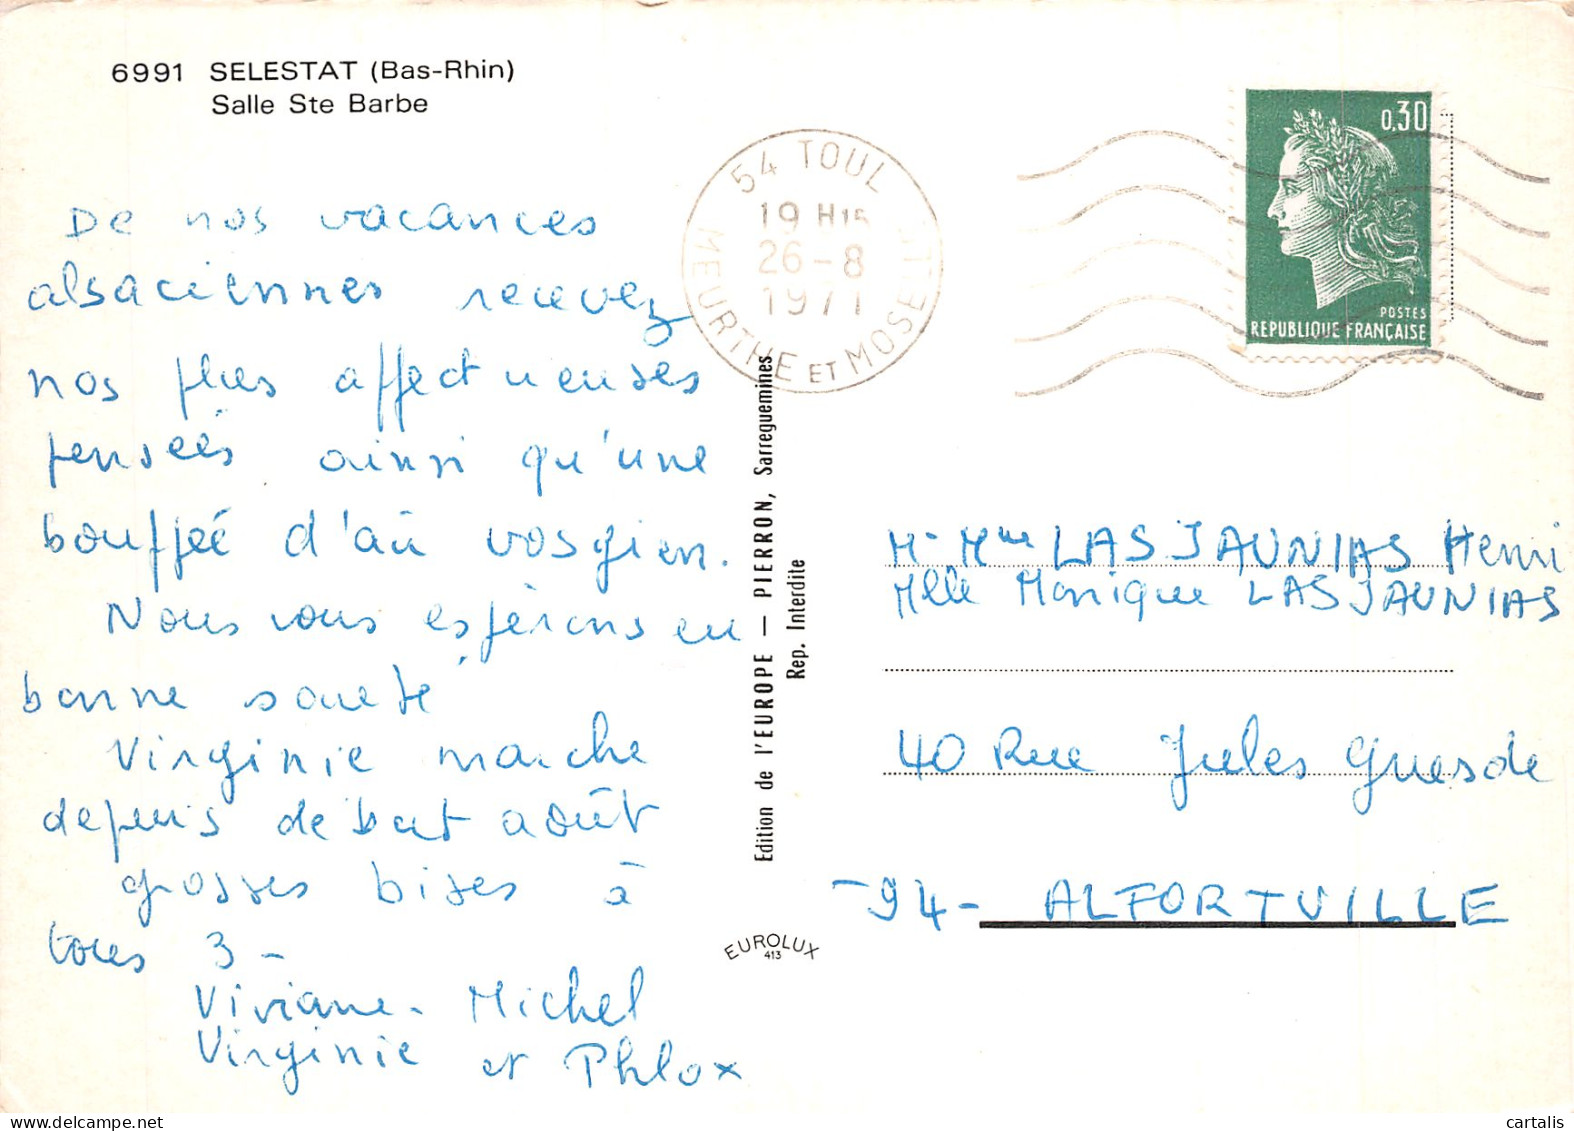 6991 SELESTAT (Bas-Rhin)
Salle Ste Barbe
De nos vacances
alsaciennes recevez
nos plus affectueuses
pensées ainsi qu'une
bouffée d'air vosgien.
Nous vous espérons en
bonne santé
Virginie marche
depuis debut août
grosses bises à
tous 3 -
Viviane - Michel
Virginie et Phlox
Edition de l'EUROPE — PIERRON, Sarreguemines
Rep. Interdite
EUROLUX
413
54 TOUL
19 H15
26-8
1971
MEURTHE ET MOSELLE
0,30
POSTES
REPUBLIQUE FRANÇAISE
Mr Mme LASJAUNIAS Henri
Melle Monique LASJAUNIAS
40 Rue Jules Guesde
-94- ALFORTVILLE
cartalis